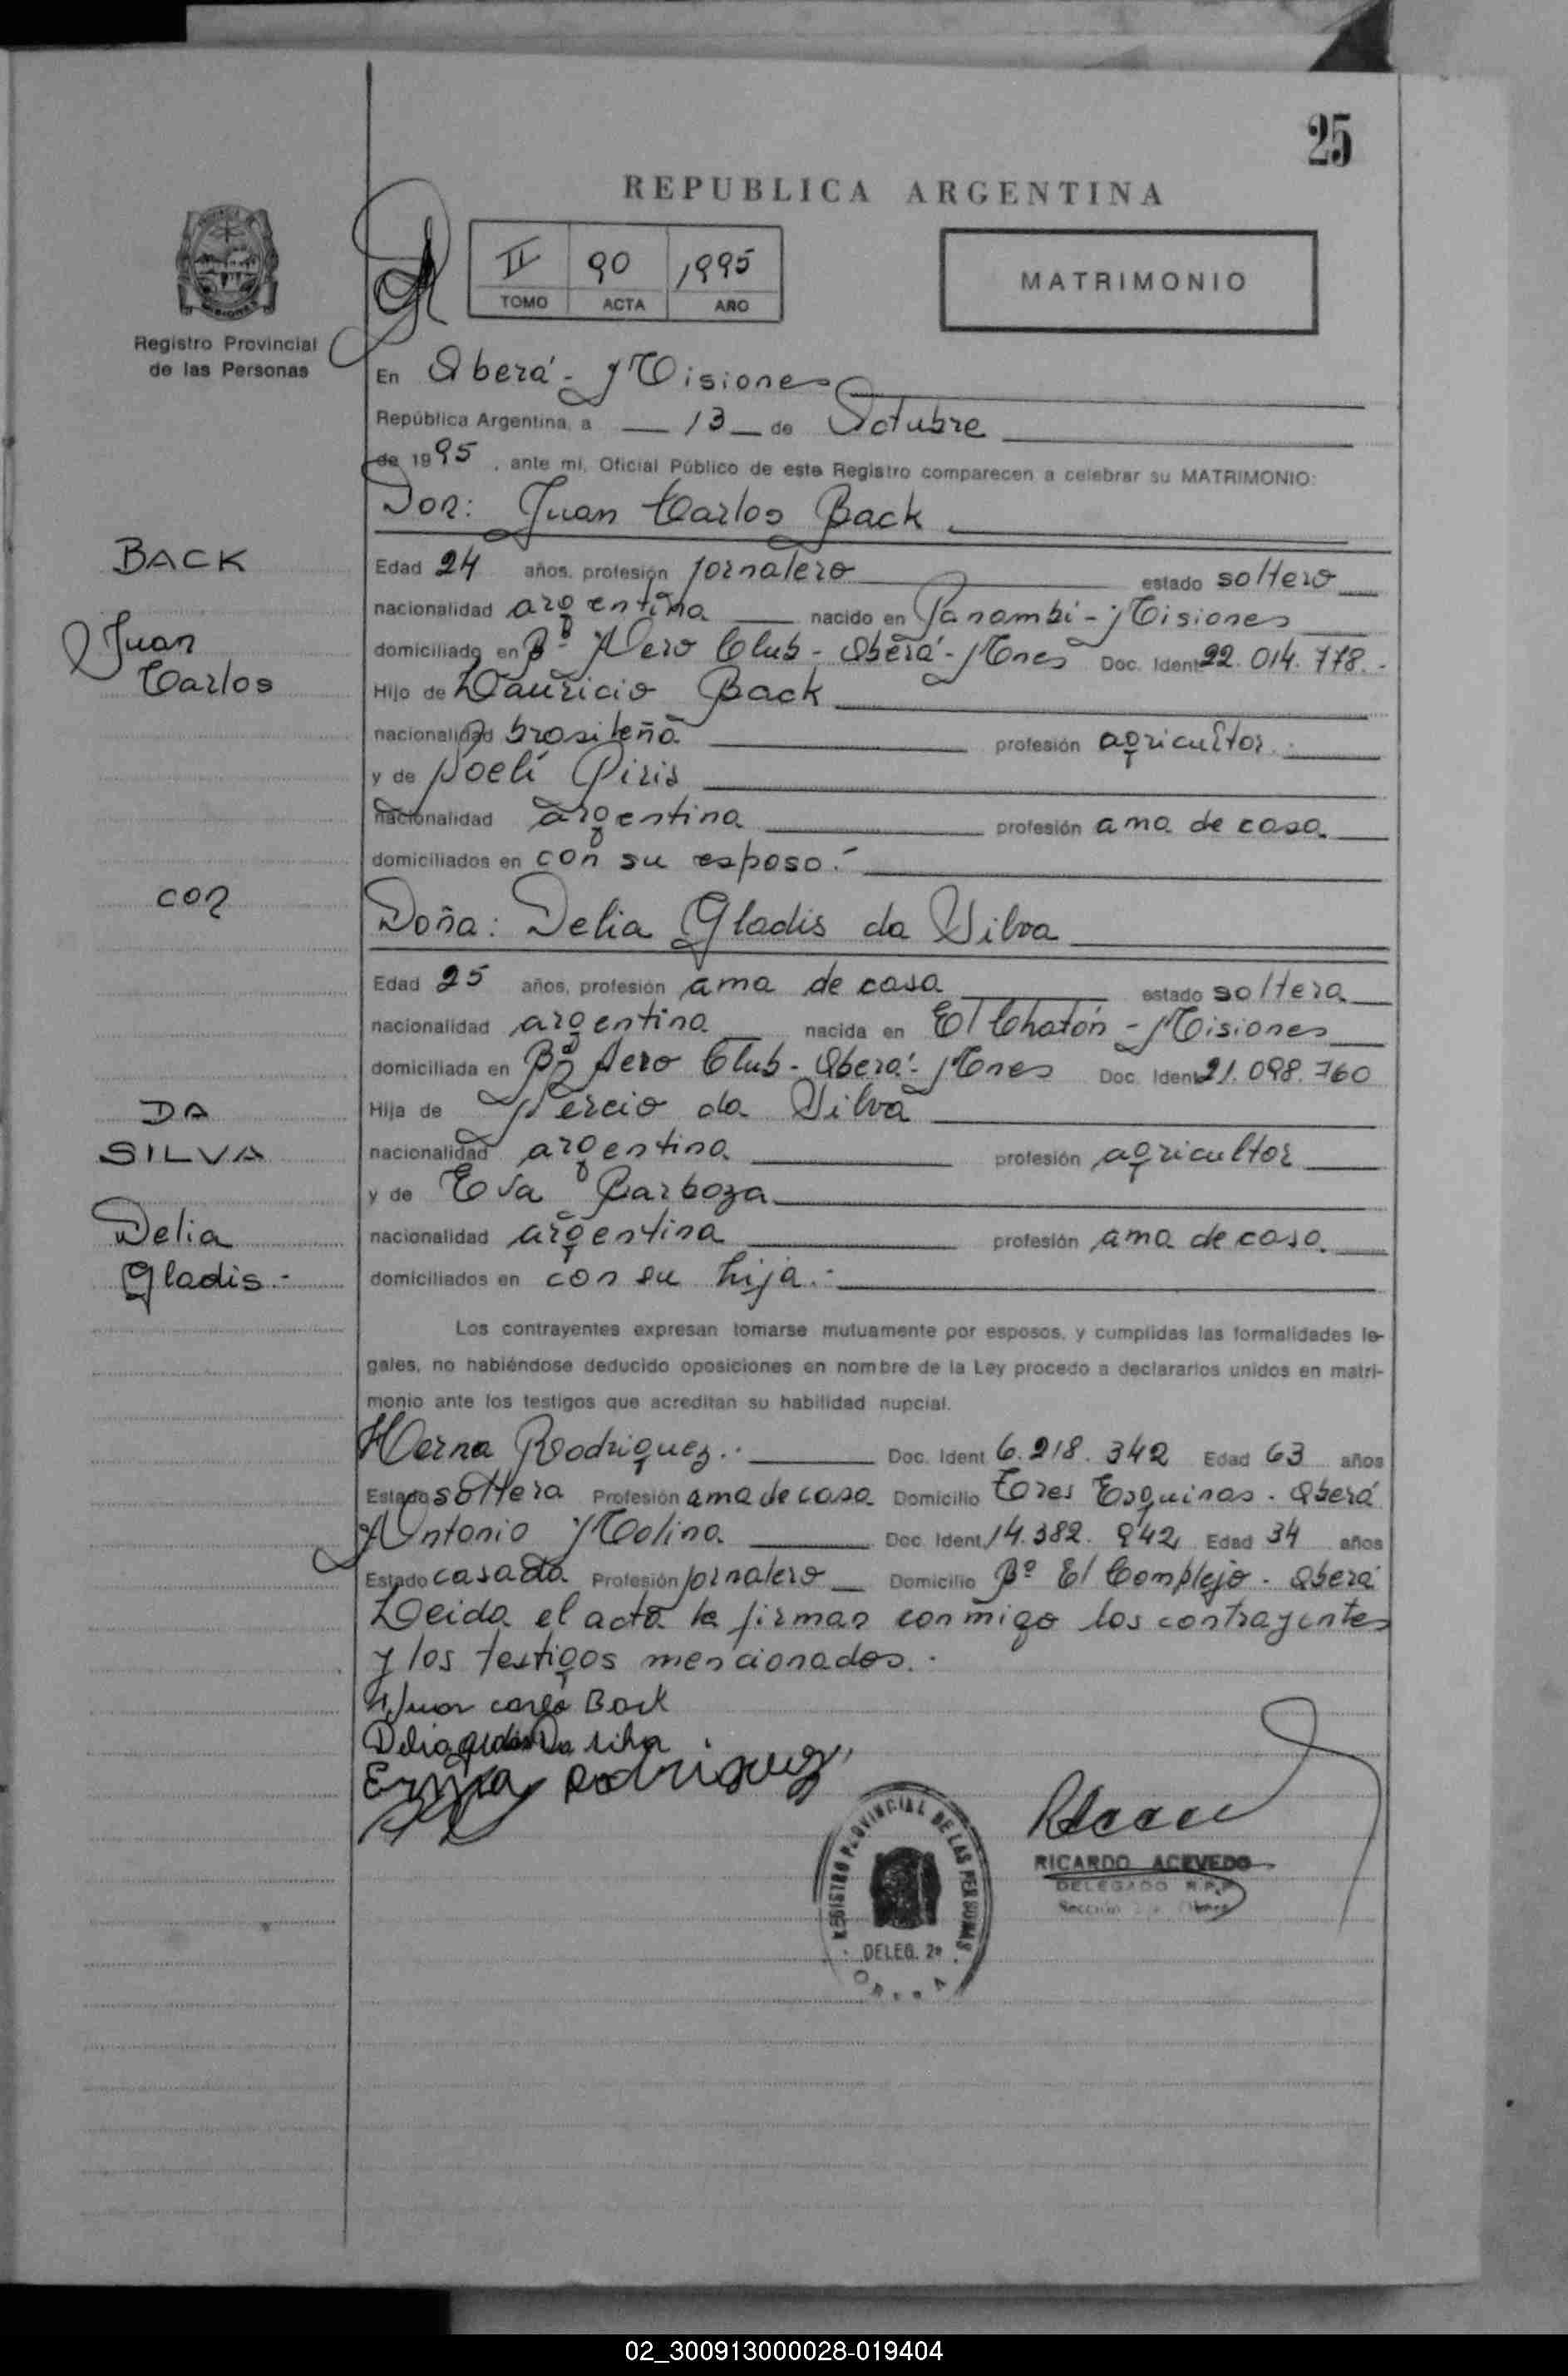 25
REPUBLICA ARGENTINA
II 90 1995
TOMO ACTA AÑO
MATRIMONIO
Registro Provincial
de las Personas
En Oberá - Misiones
República Argentina, a 13 de Octubre
de 1995, ante mi, Oficial Público de este Registro comparecen a celebrar su MATRIMONIO:
Don: Juan Carlos Back
BACK
Juan
Carlos
Edad 24 años, profesión jornalero estado soltero
nacionalidad argentina nacido en Panambí - Misiones
domiciliado en Bº Aero Club - Oberá - Mnes Doc. Ident 22.014.778.-
Hijo de Mauricio Back
nacionalidad brasileña profesión agricultor.
y de Noelí Piris
nacionalidad argentina profesión ama de casa
domiciliados en con su esposo.-
con
Doña: Delia Gladis da Silva
Edad 25 años, profesión ama de casa estado soltera
nacionalidad argentina nacida en El Chatón - Misiones
domiciliada en Bº Aero Club - Oberá - Mnes Doc. Ident 21.098.760
DA
SILVA
Delia
Gladis.-
Hija de Nercio da Silva
nacionalidad argentina profesión agricultor
y de Eva Barboza
nacionalidad argentina profesión ama de casa
domiciliados en con su hija.-
Los contrayentes expresan tomarse mutuamente por esposos, y cumplidas las formalidades le-
gales, no habiéndose deducido oposiciones en nombre de la Ley procedo a declararlos unidos en matri-
monio ante los testigos que acreditan su habilidad nupcial.
Herna Rodriguez.- Doc. Ident 6.218.342 Edad 63 años
Estado soltera Profesión ama de casa Domicilio Esquinas - Oberá
Antonio Molina Doc. Ident 14.382.942 Edad 34 años
Estado casado Profesión jornalero Domicilio Bº El Complejo - Oberá
Leida el acta la firman conmigo los contrayentes
y los testigos mencionados.-
Juan carlo Back
Delia gladis Da silva
Erma Rodriguez
REGISTRO PROVINCIAL DE LAS PERSONAS
DELEG. 2ª
OBERA
RICARDO ACEVEDO
DELEGADO R.P.P.
Sección
02_300913000028-019404